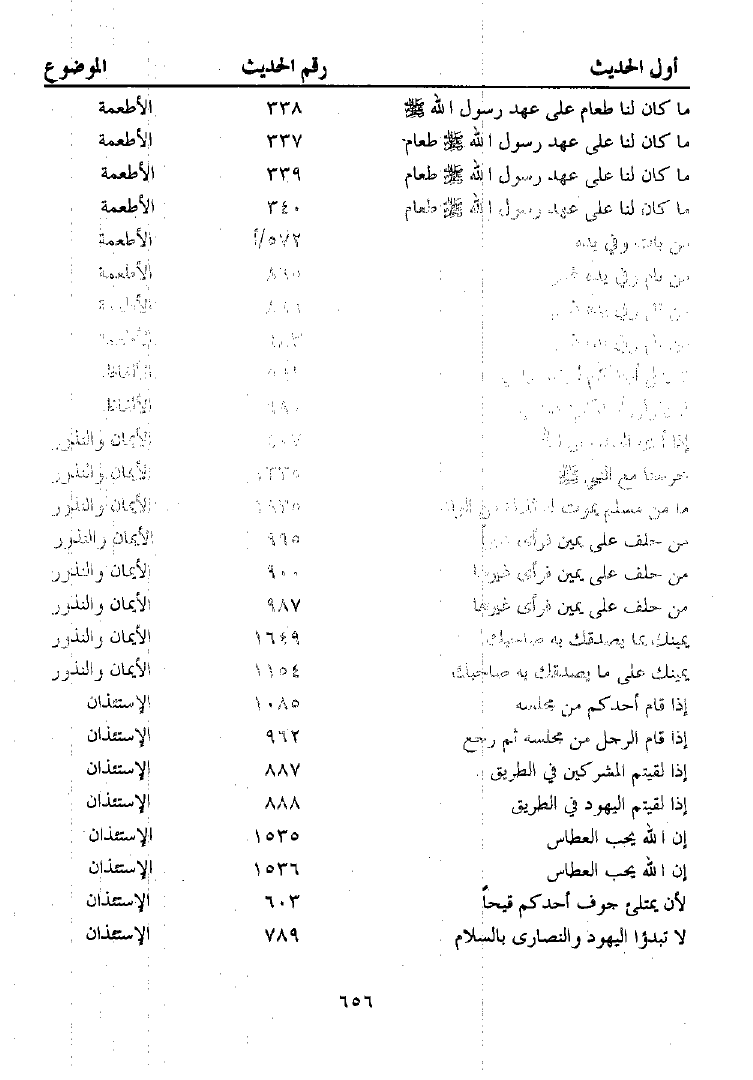 أول الحديث رقم الحديث الموضوع
ما كان لنا طعام على عهد رسول الله ﷺ ٣٣٨ الأطعمة
ما كان لنا على عهد رسول الله ﷺ طعام ٣٣٧ الأطعمة
ما كان لنا على عهد رسول الله ﷺ طعام ٣٣٩ الأطعمة
ما كان لنا على عهد رسول الله ﷺ طعام ٣٤٠ الأطعمة
من بات وفي يده ٥٧٢/أ الأطعمة
من نام وفي يده ٨٦٥ الأطعمة
من وفي يده الأطعمة
من وفي يده الأطعمة
الألفاظ
الألفاظ
إذا الأيمان والنذور
خرجنا مع النبي ﷺ الأيمان والنذور
ما من مسلم يموت له من الأيمان والنذور
من حلف على يمين فرأى ٩٦٥ الأيمان والنذور
من حلف على يمين فرأى غيرها ٩٠٠ الأيمان والنذور
من حلف على يمين فرأى غيرها ٩٨٧ الأيمان والنذور
يمينك بما يصدقك به صاحبك ١٦٤٩ الأيمان والنذور
يمينك على ما يصدقك به صاحبك ١١٥٤ الأيمان والنذور
إذا قام أحدكم من مجلسه ١٠٨٥ الإستئذان
إذا قام الرجل من مجلسه ثم رجع ٩٦٢ الإستئذان
إذا لقيتم المشركين في الطريق ٨٨٧ الإستئذان
إذا لقيتم اليهود في الطريق ٨٨٨ الإستئذان
إن الله يحب العطاس ١٥٣٥ الإستئذان
إن الله يحب العطاس ١٥٣٦ الإستئذان
لأن يمتلئ جوف أحدكم قيحاً ٦٠٣ الإستئذان
لا تبدؤا اليهود والنصارى بالسلام ٧٨٩ الإستئذان
٦٥٦